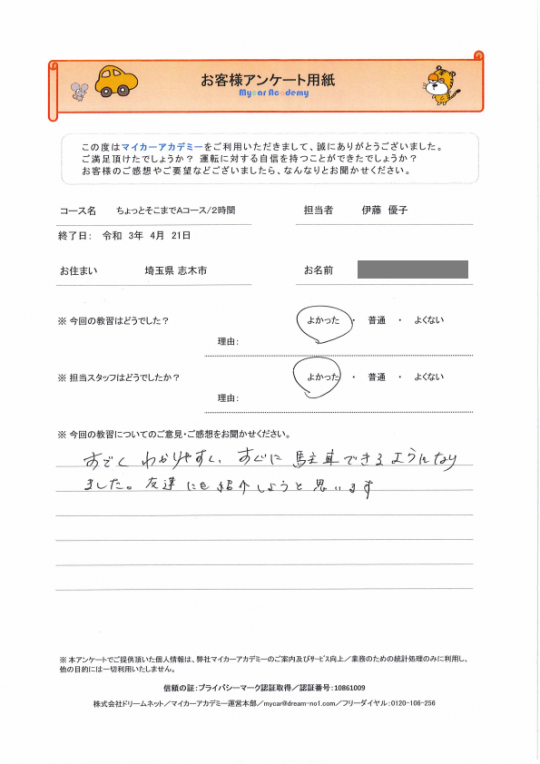 お客様アンケート用紙
Mycar Academy
この度はマイカーアカデミーをご利用いただきまして、誠にありがとうございました。
ご満足頂けたでしょうか？ 運転に対する自信を持つことができたでしょうか？
お客様のご感想やご要望などございましたら、なんなりとお聞かせください。
コース名 ちょっとそこまでAコース/2時間 担当者 伊藤 優子
終了日： 令和 3年 4月 21日
お住まい 埼玉県 志木市 お名前
※ 今回の教習はどうでした？ よかった ・ 普通 ・ よくない
理由：
※ 担当スタッフはどうでしたか？ よかった ・ 普通 ・ よくない
理由：
※ 今回の教習についてのご意見・ご感想をお聞かせください。
すごく わかりやすく、すぐに 駐車できるようになり
ました。友達にも紹介しようと思います
※ 本アンケートでご提供頂いた個人情報は、弊社マイカーアカデミーのご案内及びサービス向上／業務のための統計処理のみに利用し、
他の目的には一切利用いたしません。
信頼の証：プライバシーマーク認証取得／認証番号：10861009
株式会社ドリームネット／マイカーアカデミー運営本部／mycar@dream-no1.com／フリーダイヤル：0120-106-256